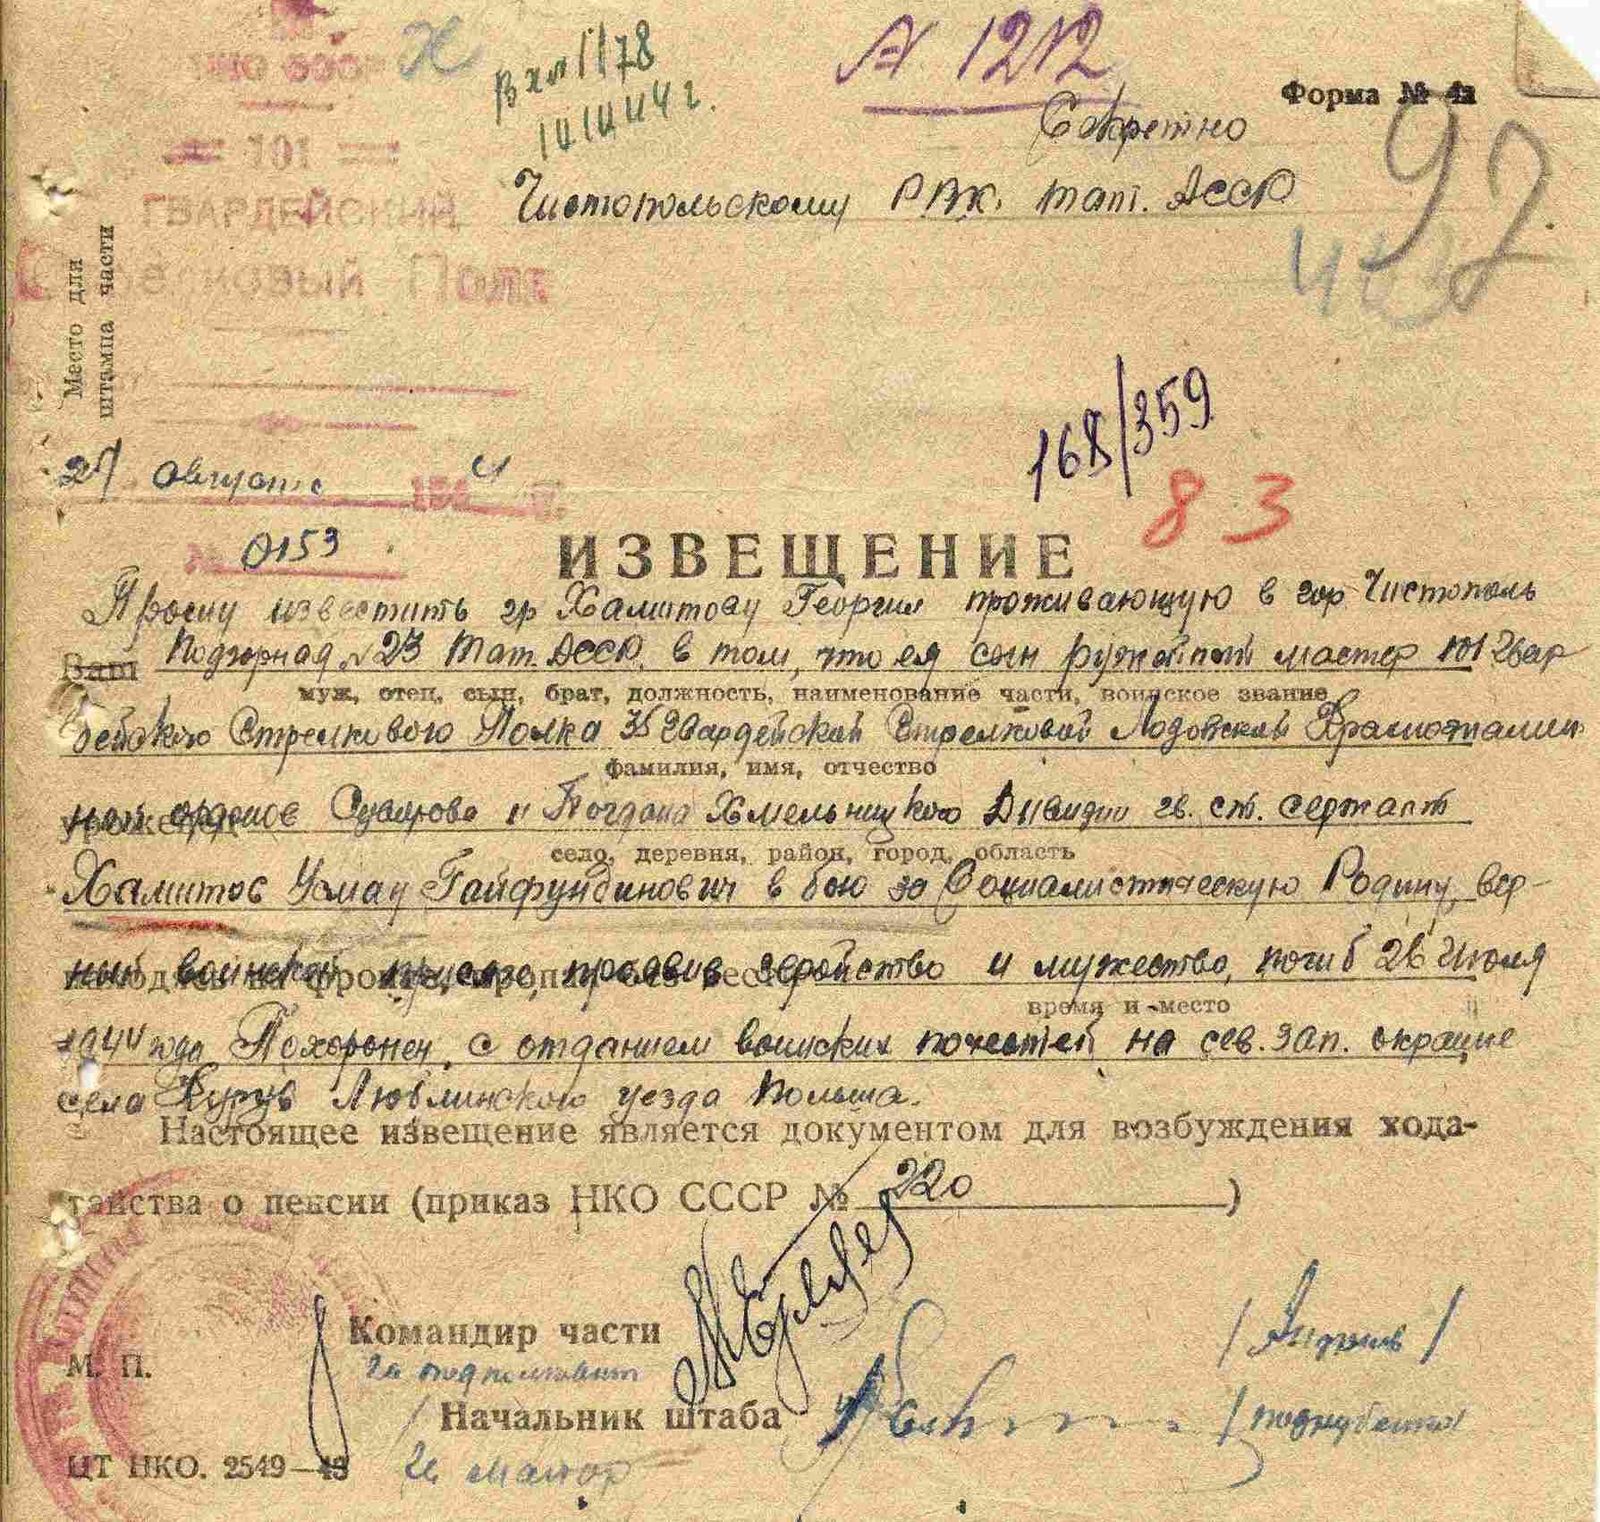 НКО СССР
Вх № 1178
№ 1212
Форма № 4а
Секретно
97
101
ГВАРДЕЙСКИЙ
Стрелковый Полк
Чистопольскому РВК. Тат. АССР
Место для
штампа части
168/359
83
27 августа 1944 г.
№ 0153
ИЗВЕЩЕНИЕ
Прошу известить гр Хамитову Георгия проживающую в гор Чистополь
Ваш Подгорная № 23 Тат. АССР, в том, что ея сын ружейный мастер 101 Гвар
муж, отец, сын, брат, должность, наименование части, воинское звание
дейского Стрелкового Полка Гвардейской Стрелковой Лозовской Краснознамен
фамилия, имя, отчество
ной орденов Суворова и Богдана Хмельницкого Дивизии гв. ст. сержант
село, деревня, район, город, область
Хамитов Усман Гайфундинович в бою за Социалистическую Родину, вер-
ный воинской присяге, проявив геройство и мужество, погиб 26 Июля
время и место
1944 года Похоронен с отданием воинских почестей на сев. зап. окраине
села Курув Люблинского уезда Польша.
Настоящее извещение является документом для возбуждения хода-
тайства о пенсии (приказ НКО СССР № 220 )
Командир части
гв подполковник
М. П.
Начальник штаба
гв майор
ЦТ НКО. 2549—43